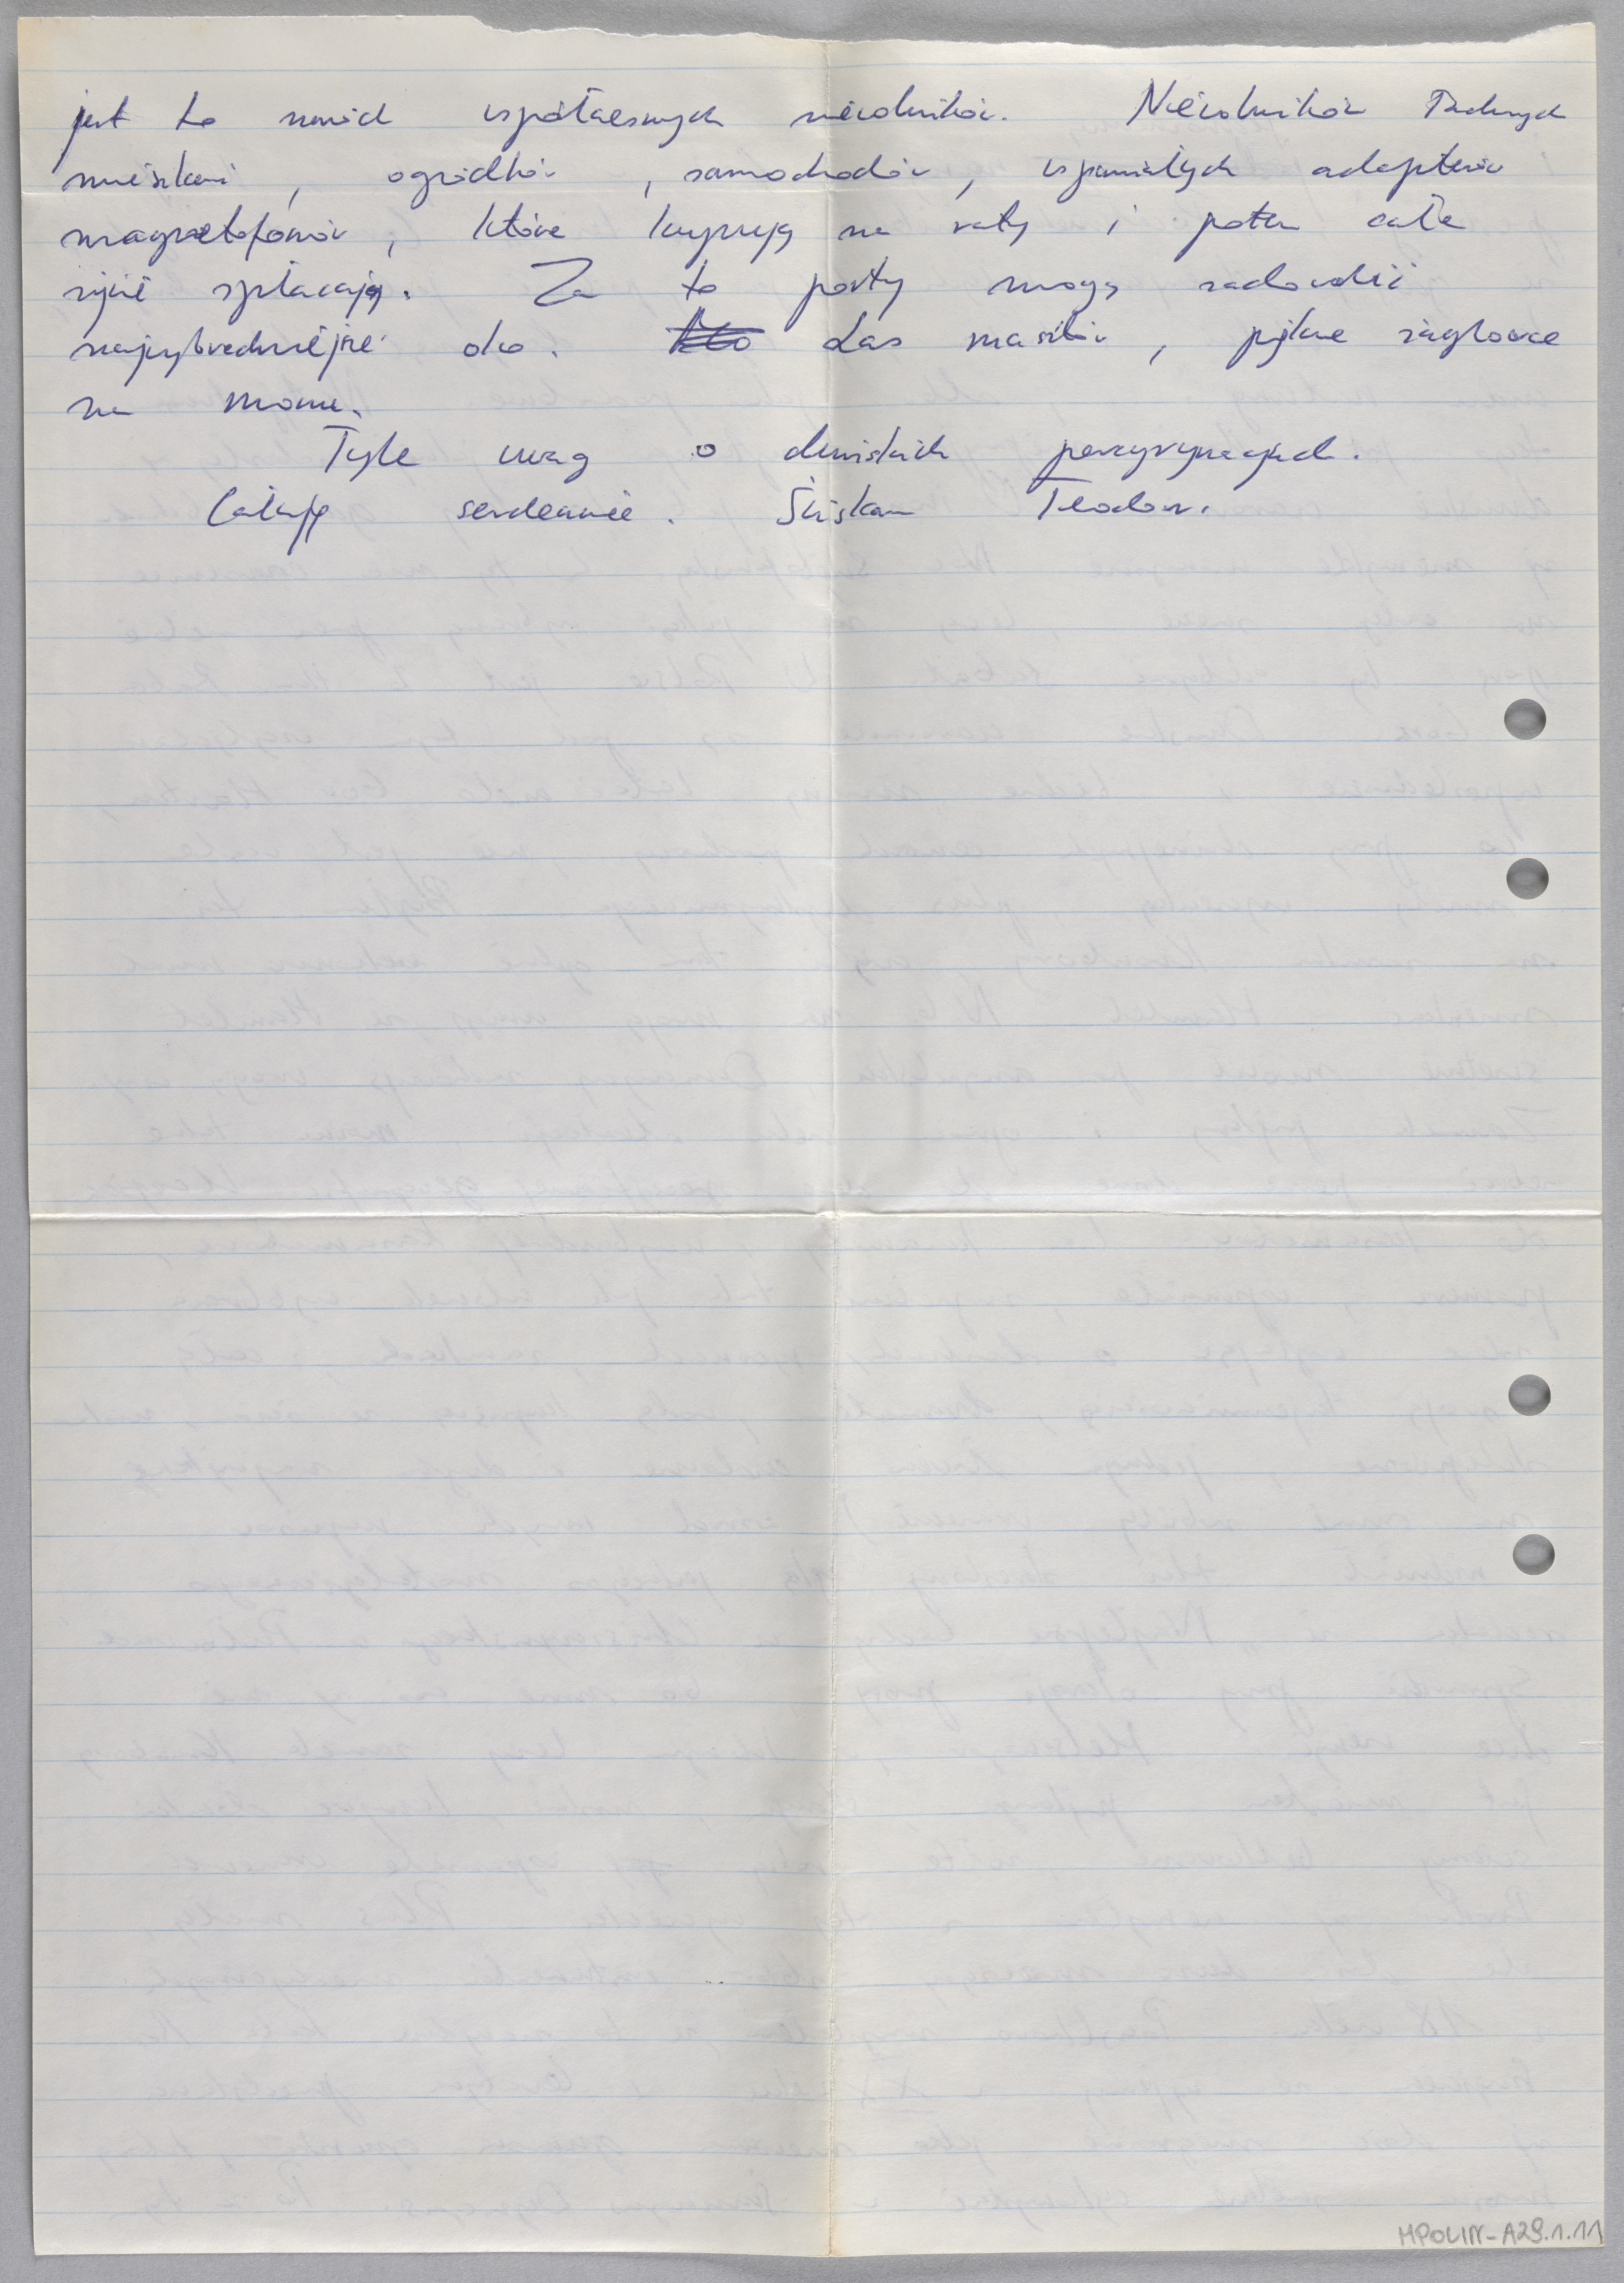 jest to naród współczesnych niewolników. Niewolników ładnych
mieszkań, ogródków, samochodów, wspaniałych adapterów
magnetofonów, które kupują na raty i potem całe
życie spłacają. Za to porty mogą zadowolić
najwybredniejsze oko. Las masztów, piękne żaglowce
na morzu.
Tyle uwag o duńskich peregrynacjach.
Całuję serdecznie. Ściskam Teodor.
MPOLIN-A29.1.11